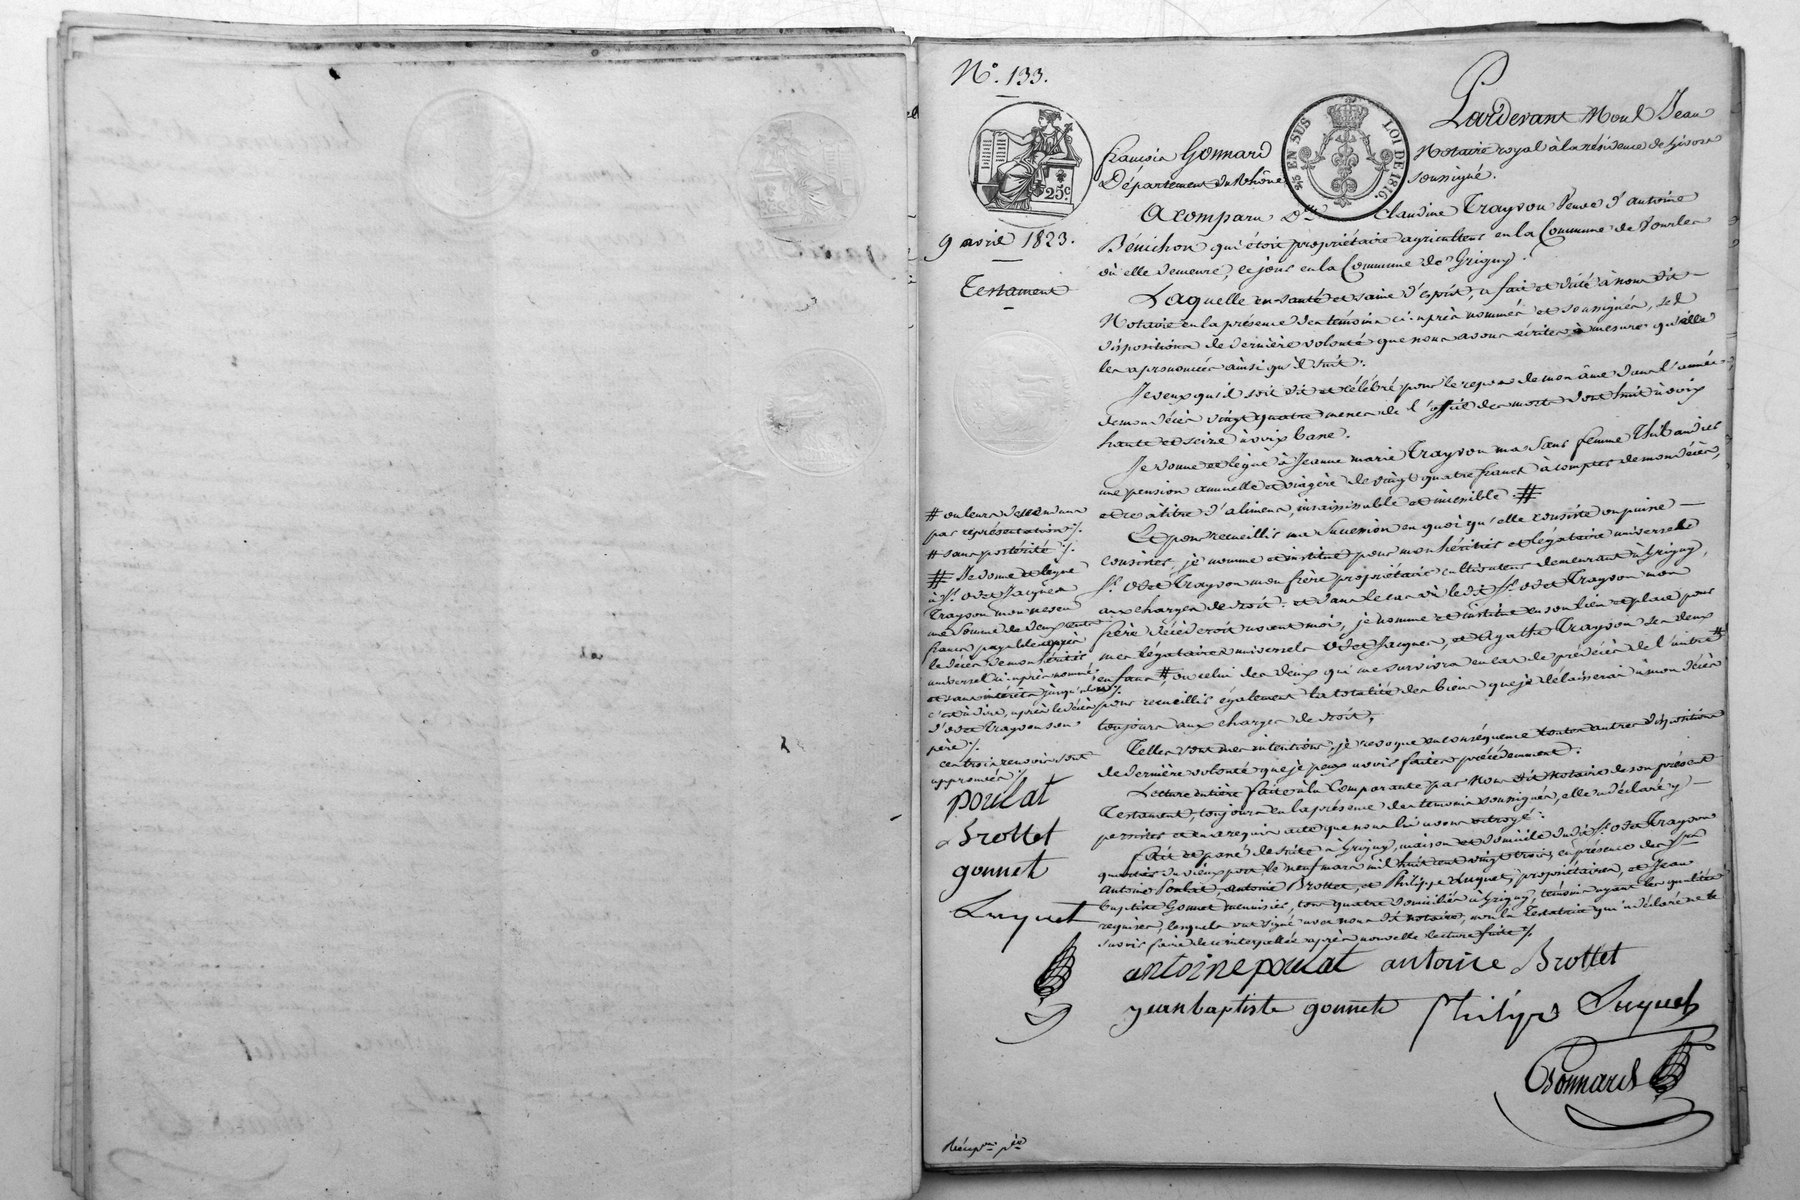 N.° 133.
25.c
25 EN SUS
LOI DE 1816.
9 avril 1823.
Testament
Pardevant Mons.r Jean
françois Gonnard Notaire royal à la résidence de Givors
Département du Rhône soussigné.
A comparu D.me Claudine Trayvou Veuve d'antoine
Bénichon qui étoit propriétaire agriculteur en la Commune de Vourles
où elle demeure, ce jour en la Commune de Grigny.
Laquelle en santé et saine d'esprit, a fait et dicté à nous dit
Notaire en la présence des témoins ci-après nommés et soussignés, ses
dispositions de dernière volonté que nous avons écrites à mesure qu'elle
les a prononcées ainsi qu'il suit.
Je veux qu'il soit dit et célébré pour le repos de mon âme dans l'année
de mon décès vingt quatre messes de l'office des morts dont huit à voix
haute et seize à voix basse.
Je donne et lègue à Jeanne marie Trayvou ma sœur femme
une pension annuelle et viagère de vingt quatre francs à compter de mon décès,
et ce à titre d'aliment, insaisissable et incessible. #
Et pour recueillir ma succession en quoi qu'elle consiste ou puisse
consister, je nomme et institue pour mon héritier et légataire universel
S.r odet Trayvou mon frère propriétaire cultivateur demeurant à Grigny,
aux charges de droit. et dans le cas où le dit S.r odet Trayvou mon
frère décèderoit avant moi, je nomme et institue en son lieu et place pour
mes légataires universels odet Jacques, et Agathe Trayvou ses deux
enfans #, ou celui des deux qui me survivra en cas de prédécès de l'autre #
pour recueillir également la totalité des biens que je délaisserai à mon décès
toujours aux charges de droit.
Telles sont mes intentions, je revoque en conséquence toutes autres dispositions
de dernière volonté que je peux avoir faites précédemment.
Lecture entière faite à la Comparante par Nous dit Notaire de son présent
Testament, toujours en la présence des témoins soussignés, elle a déclaré y
persister et en a requis acte que nous lui avons octroyé.
fait et passé de suite à Grigny, maison et domicile du dit S.r odet Trayvou
quartier du vieux port le neuf mars mil huit cent vingt trois, en présence des S.rs
antoine Poulat, antoine Brottet, et Philippe Luquet, propriétaires, et Jean
baptiste Gonnet menuisier, tous quatre domiciliés à Grigny, témoins ayant les qualités
requises, lesquels ont signé avec nous dit notaire, non la Testatrice qui a déclaré ne le
savoir faire de ce interpellée après nouvelle lecture faite ./.
# ou leurs descendans
par représentation ./.
# sans postérité ./.
# Je donne et lègue
à S.r odet Jacques
Trayvou mon neveu
une somme de deux cents
francs payable après
le décès de mon héritier
universel ci-après nommé,
et sans intérêts jusqu'alors
c'est à dire, après le décès
d'odet Trayvou son
père ./.
ces trois renvois sont
approuvés ./.
poulat
Brottet
gonnet
Luquet
antoine poulat antoine Brottet
jean baptiste gonnet Philipe Luquet
Gonnard